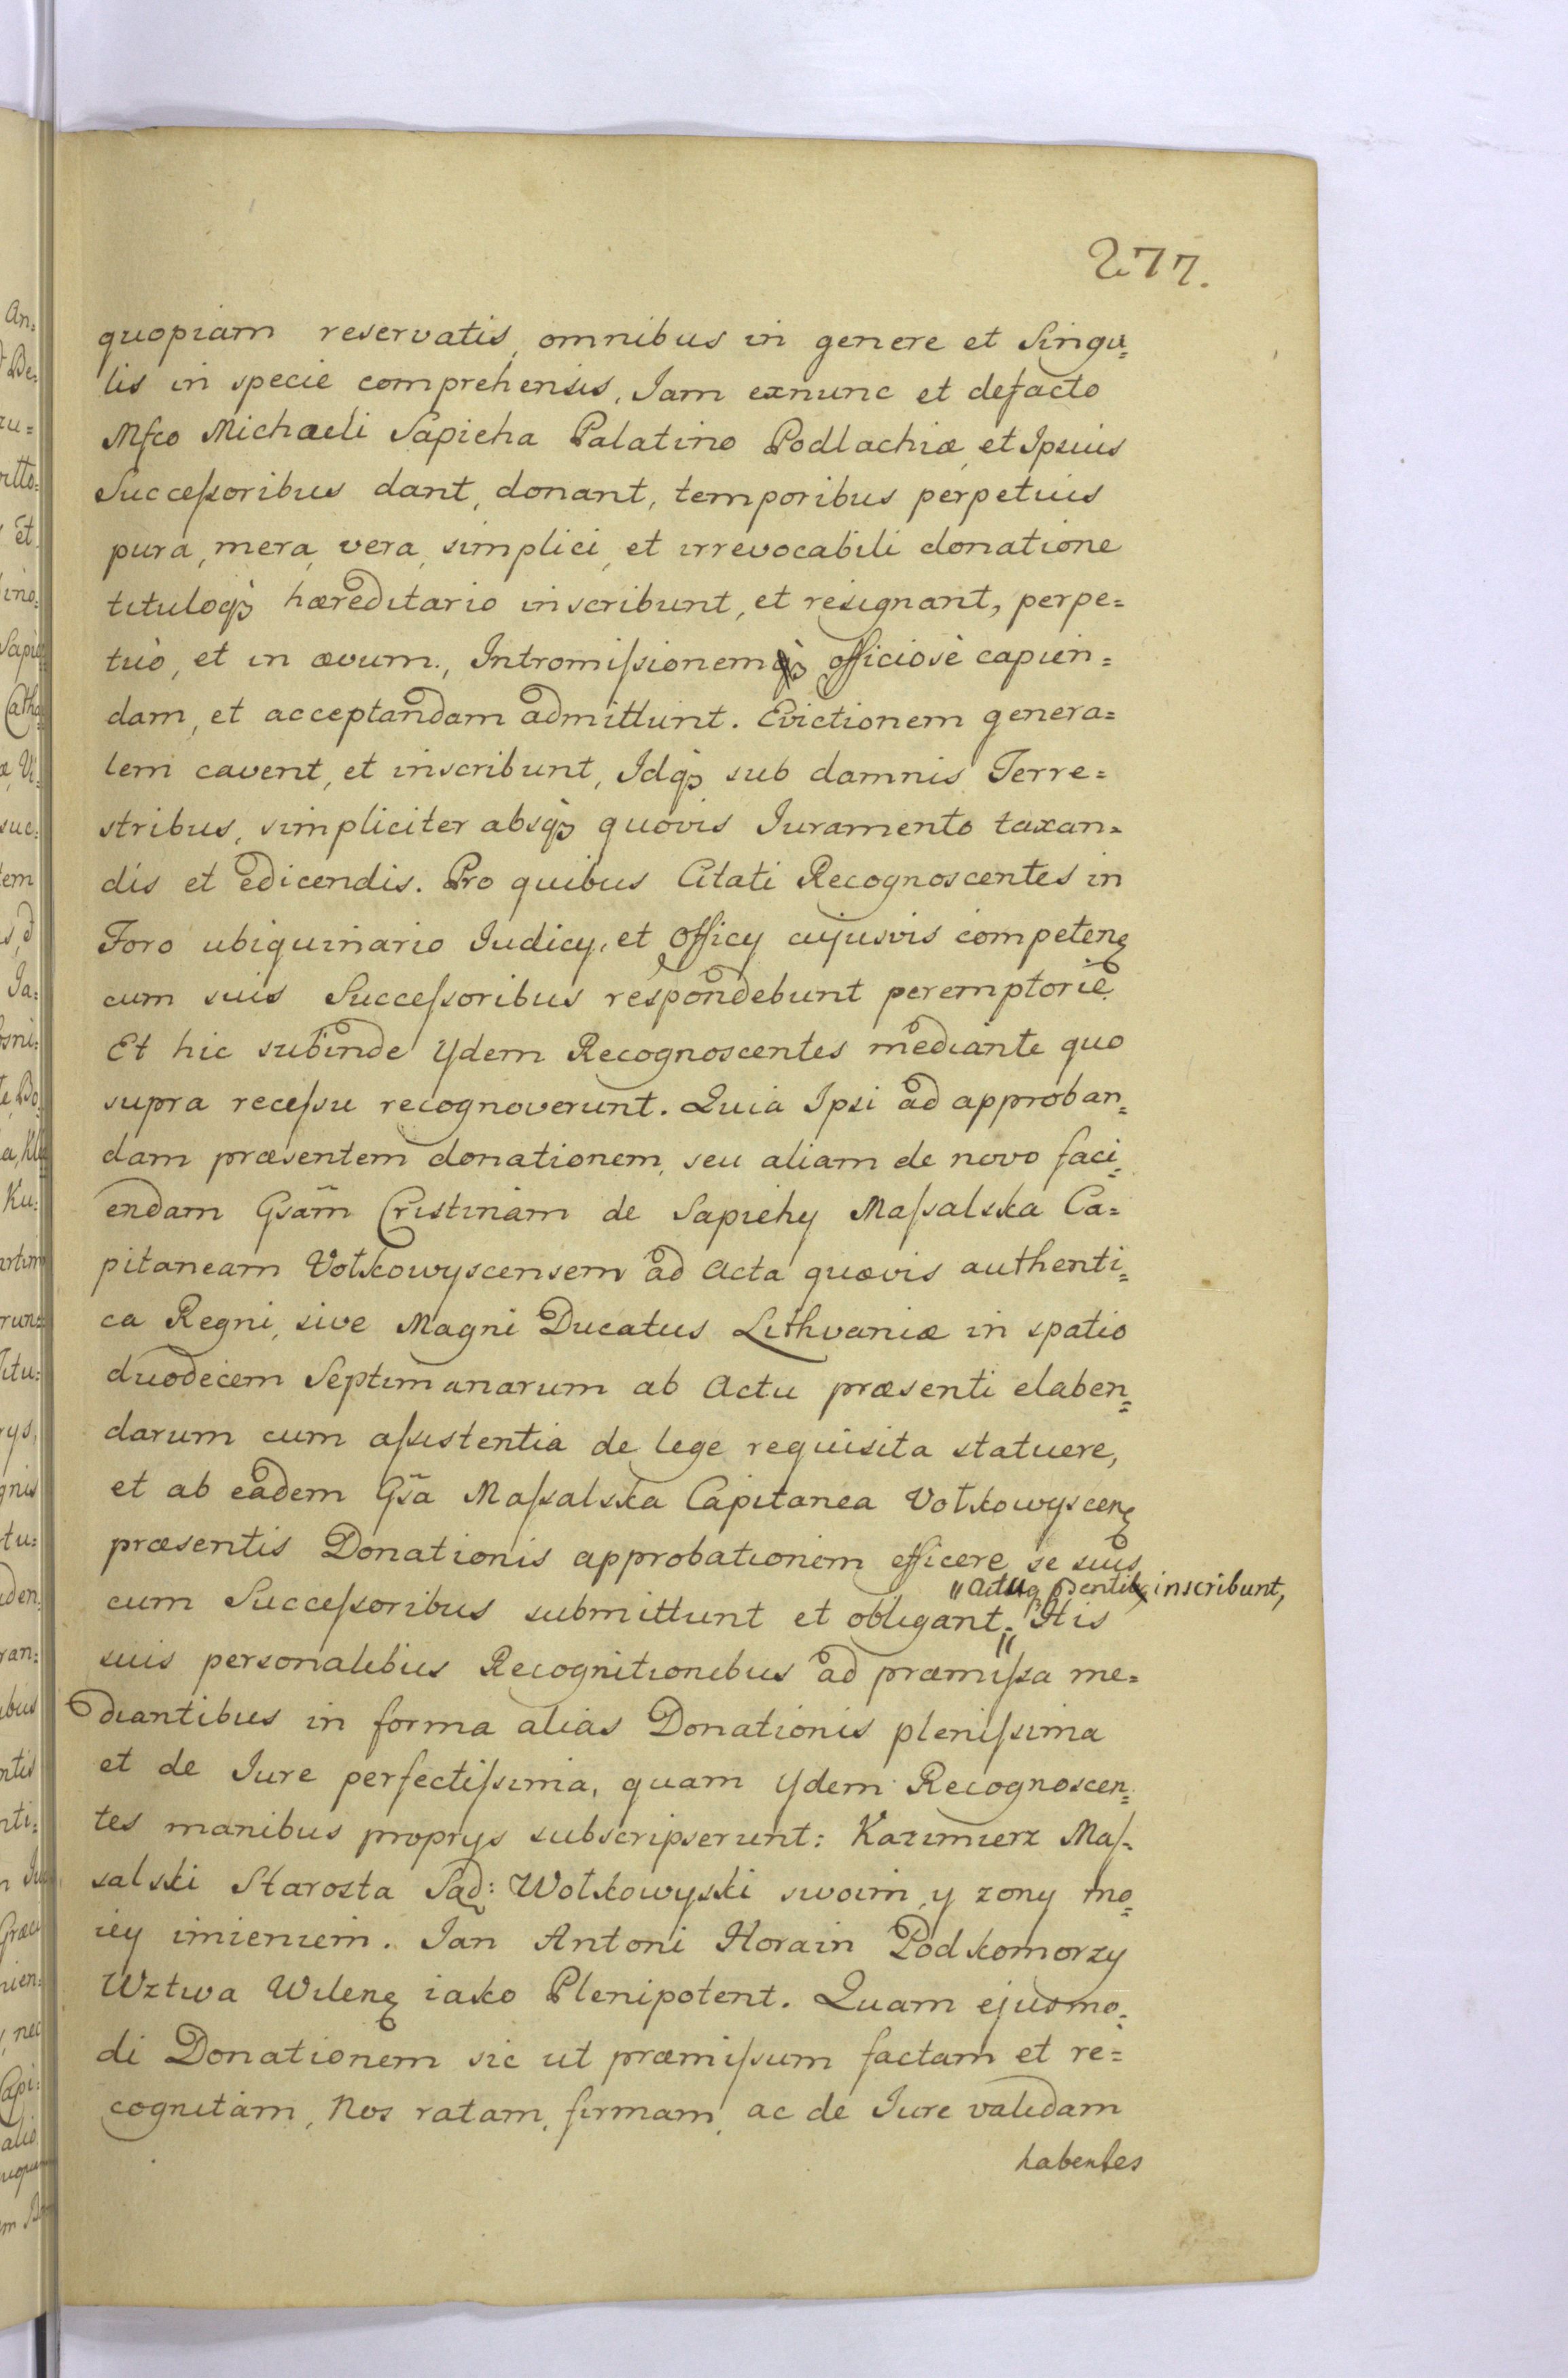 277.
quopiam reservatis, omnibus in genere et Singu=
lis in specie comprehensis, Iam exnunc et defacto
Mfco Michaeli Sapieha Palatino Podlachiæ, et Ipsius
Succeſsoribus dant, donant, temporibus perpetuis
pura, mera, vera, simplici, et irrevocabili donatione
tituloqꝫ hæreditario inscribunt, et resignant, perpe=
tuò, et in ævum., Intromiſsionemqꝫ officiosè capien=
dam, et acceptandam admittunt. Evictionem genera=
lem cavent, et inscribunt, Idqꝫ sub damnis Terre=
stribus, simpliciter absqꝫ quovis Iuramento taxan=
dis et edicendis. Pro quibus Citati Recognoscentes in
Foro ubiquinario Iudicy, et Officy cujusvis competenꝫ
cum suis Succeſsoribus respondebunt peremptoriè.
Et hic subinde Ydem Recognoscentes mediante quo
supra receſsu recognoverunt. Quia Ipsi ad approban=
dam præsentem donationem, seu aliam de novo faci=
endam Gsam̃ Cristinam de Sapiehy Maſsalska Ca=
pitaneam Vołkowyscensem ad Acta quævis authenti=
ca Regni, sive Magni Ducatus Lithvaniæ in spatio
duodecem Septimanarum ab Actu præsenti elaben=
darum cum aſsistentia de lege requisita statuere,
et ab eadem Gsã Maſsalska Capitanea Vołkowyscenꝫ
præsentis Donationis approbationem efficere se suis
inscribunt,
cum Succeſsoribus submittunt et obligant. His
suis personalibus Recognitionibus ad præmiſsa me=
diantibus in forma alias Donationis pleniſsima
et de Iure perfectiſsima, quam Ydem Recognoscen=
tes manibus proprys subscripserunt: Kazimierz Maſ=
salski Starosta Sąd: Wołkowyski swoim, y zony mo=
iey imieniem. Jan Antoni Horain Podkomorzy
Wztwa Wilenꝫ iako Plenipotent. Quam ejusmo=
di Donationem sic ut præmiſsum factam et re=
cognitam, Nos ratam, firmam, ac de Iure validam
habentes